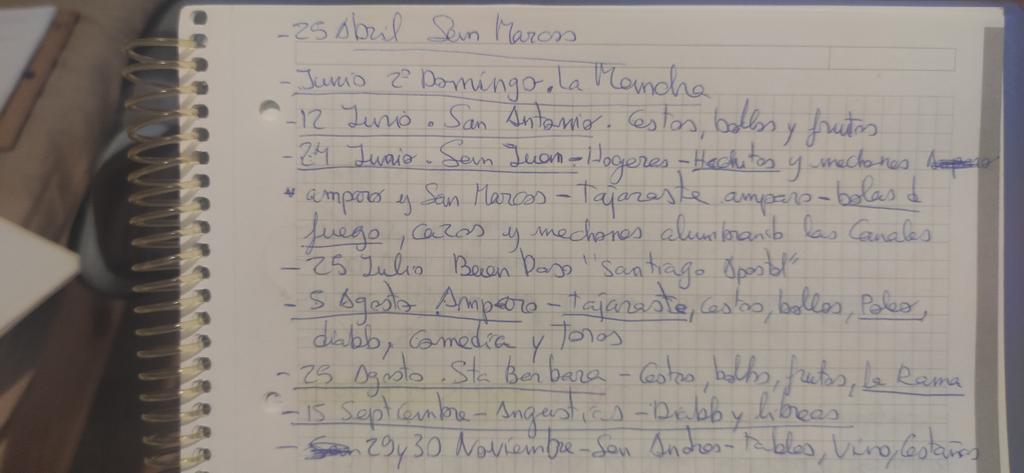 - 25 Abril San Marcos
- Junio 2º Domingo. La Mancha
- 12 Junio. San Antonio. Cestos, bollos y frutos
- 24 Junio. San Juan - Hogeres - Hachitos y mechones
amparo y San Marcos - Tajaraste amparo - bolas d
fuego, cazos y mechones alumbrando las Canales
- 25 Julio Buen Paso "Santiago Apostol"
- 5 Agosto. Amparo - tajaraste, Cestos, bollos, Poleo,
diablo, Comedia y Toros
- 25 Agosto. Sta Barbara - Cestos, bollos, frutas, la Rama
- 15 Septiembre - Angustias - Diablo y libreas
- 29 y 30 Noviembre - San Andres - Tablas, Vino, Castañas